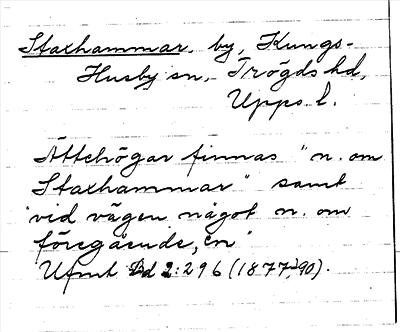 Staxhammar, by, Kungs-
Husby sn, Trögds hd,
Upps. l.
Ättehögar finnas "n. om
Staxhammar" samt
"vid vägen något n. om
föregående, en"
Ufmt Bd 2:296 (1877-90).